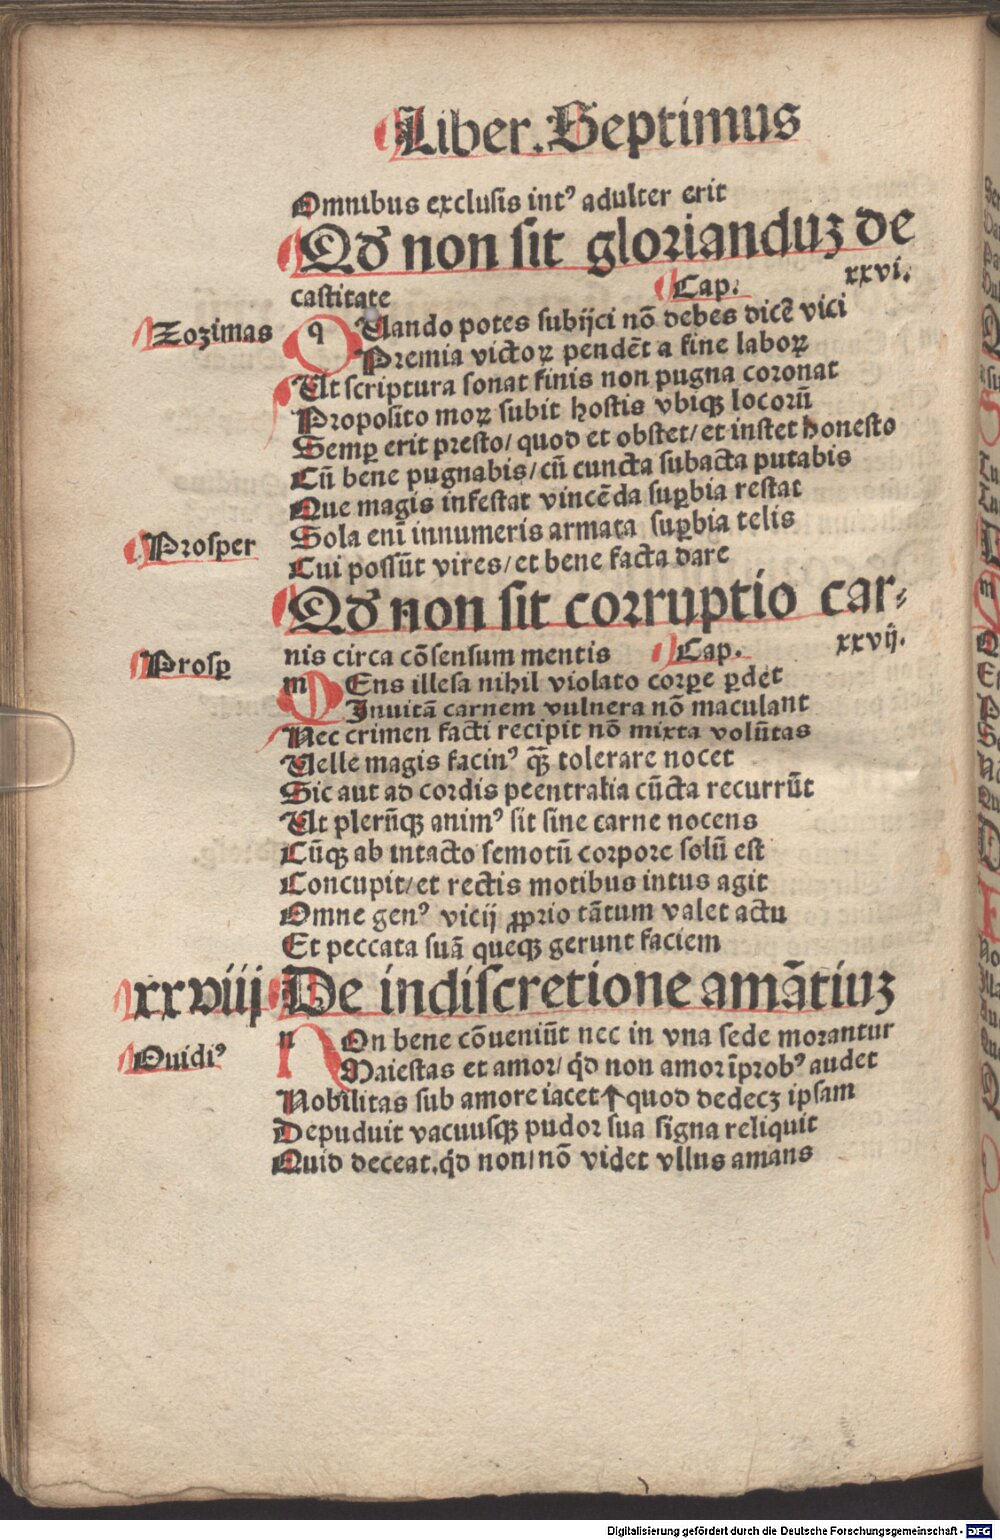 Liber. Septimus
Omnibus exclusis intꝰ adulter erit
Qđ non sit glorianduꝫ de
castitate Cap. xxvi.
Zozimas
q Uando potes subijci nõ debes dicẽ vici
Premia victoꝝ pendẽt a fine laboꝝ
Ut scriptura sonat finis non pugna coronat
Proposito moꝝ subit hostis vbiqꝫ locorũ
Semꝑ erit presto/ quod et obstet/ et instet honesto
Cũ bene pugnabis/ cũ cuncta subacta putabis
Que magis infestat vincẽda suꝑbia restat
Sola enĩ innumeris armata suꝑbia telis
Prosper
Cui possũt vires/ et bene facta dare
Qđ non sit corruptio car⸗
nis circa cõsensum mentis Cap. xxvij.
Prosꝑ
m Ens illesa nihil violato corꝑe ꝑdet
Inuitã carnem vulnera nõ maculant
Nec crimen facti recipit nõ mixta volũtas
Uelle magis facinꝰ qꝫ̃ tolerare nocet
Sic aut ad cordis peentralia cũcta recurrũt
Ut plerũqꝫ animꝰ sit sine carne nocens
Cũqꝫ ab intacto semotũ corpore solũ est
Concupit/ et rectis motibus intus agit
Omne genꝰ vicij ꝓprio tãtum valet actu
Et peccata suã queqꝫ gerunt faciem
xxviij De indiscretione amãtiuꝫ
Ouidiꝰ
n On bene cõueniũt nec in vna sede morantur
Maiestas et amor/ qđ non amor ĩprobꝰ audet
Nobilitas sub amore iacet ↑ quod dedecꝫ ipsam
Depuduit vacuusqꝫ pudor sua signa reliquit
Quid deceat. qđ non/ nõ videt vllus amans
Digitalisierung gefördert durch die Deutsche Forschungsgemeinschaft - DFG